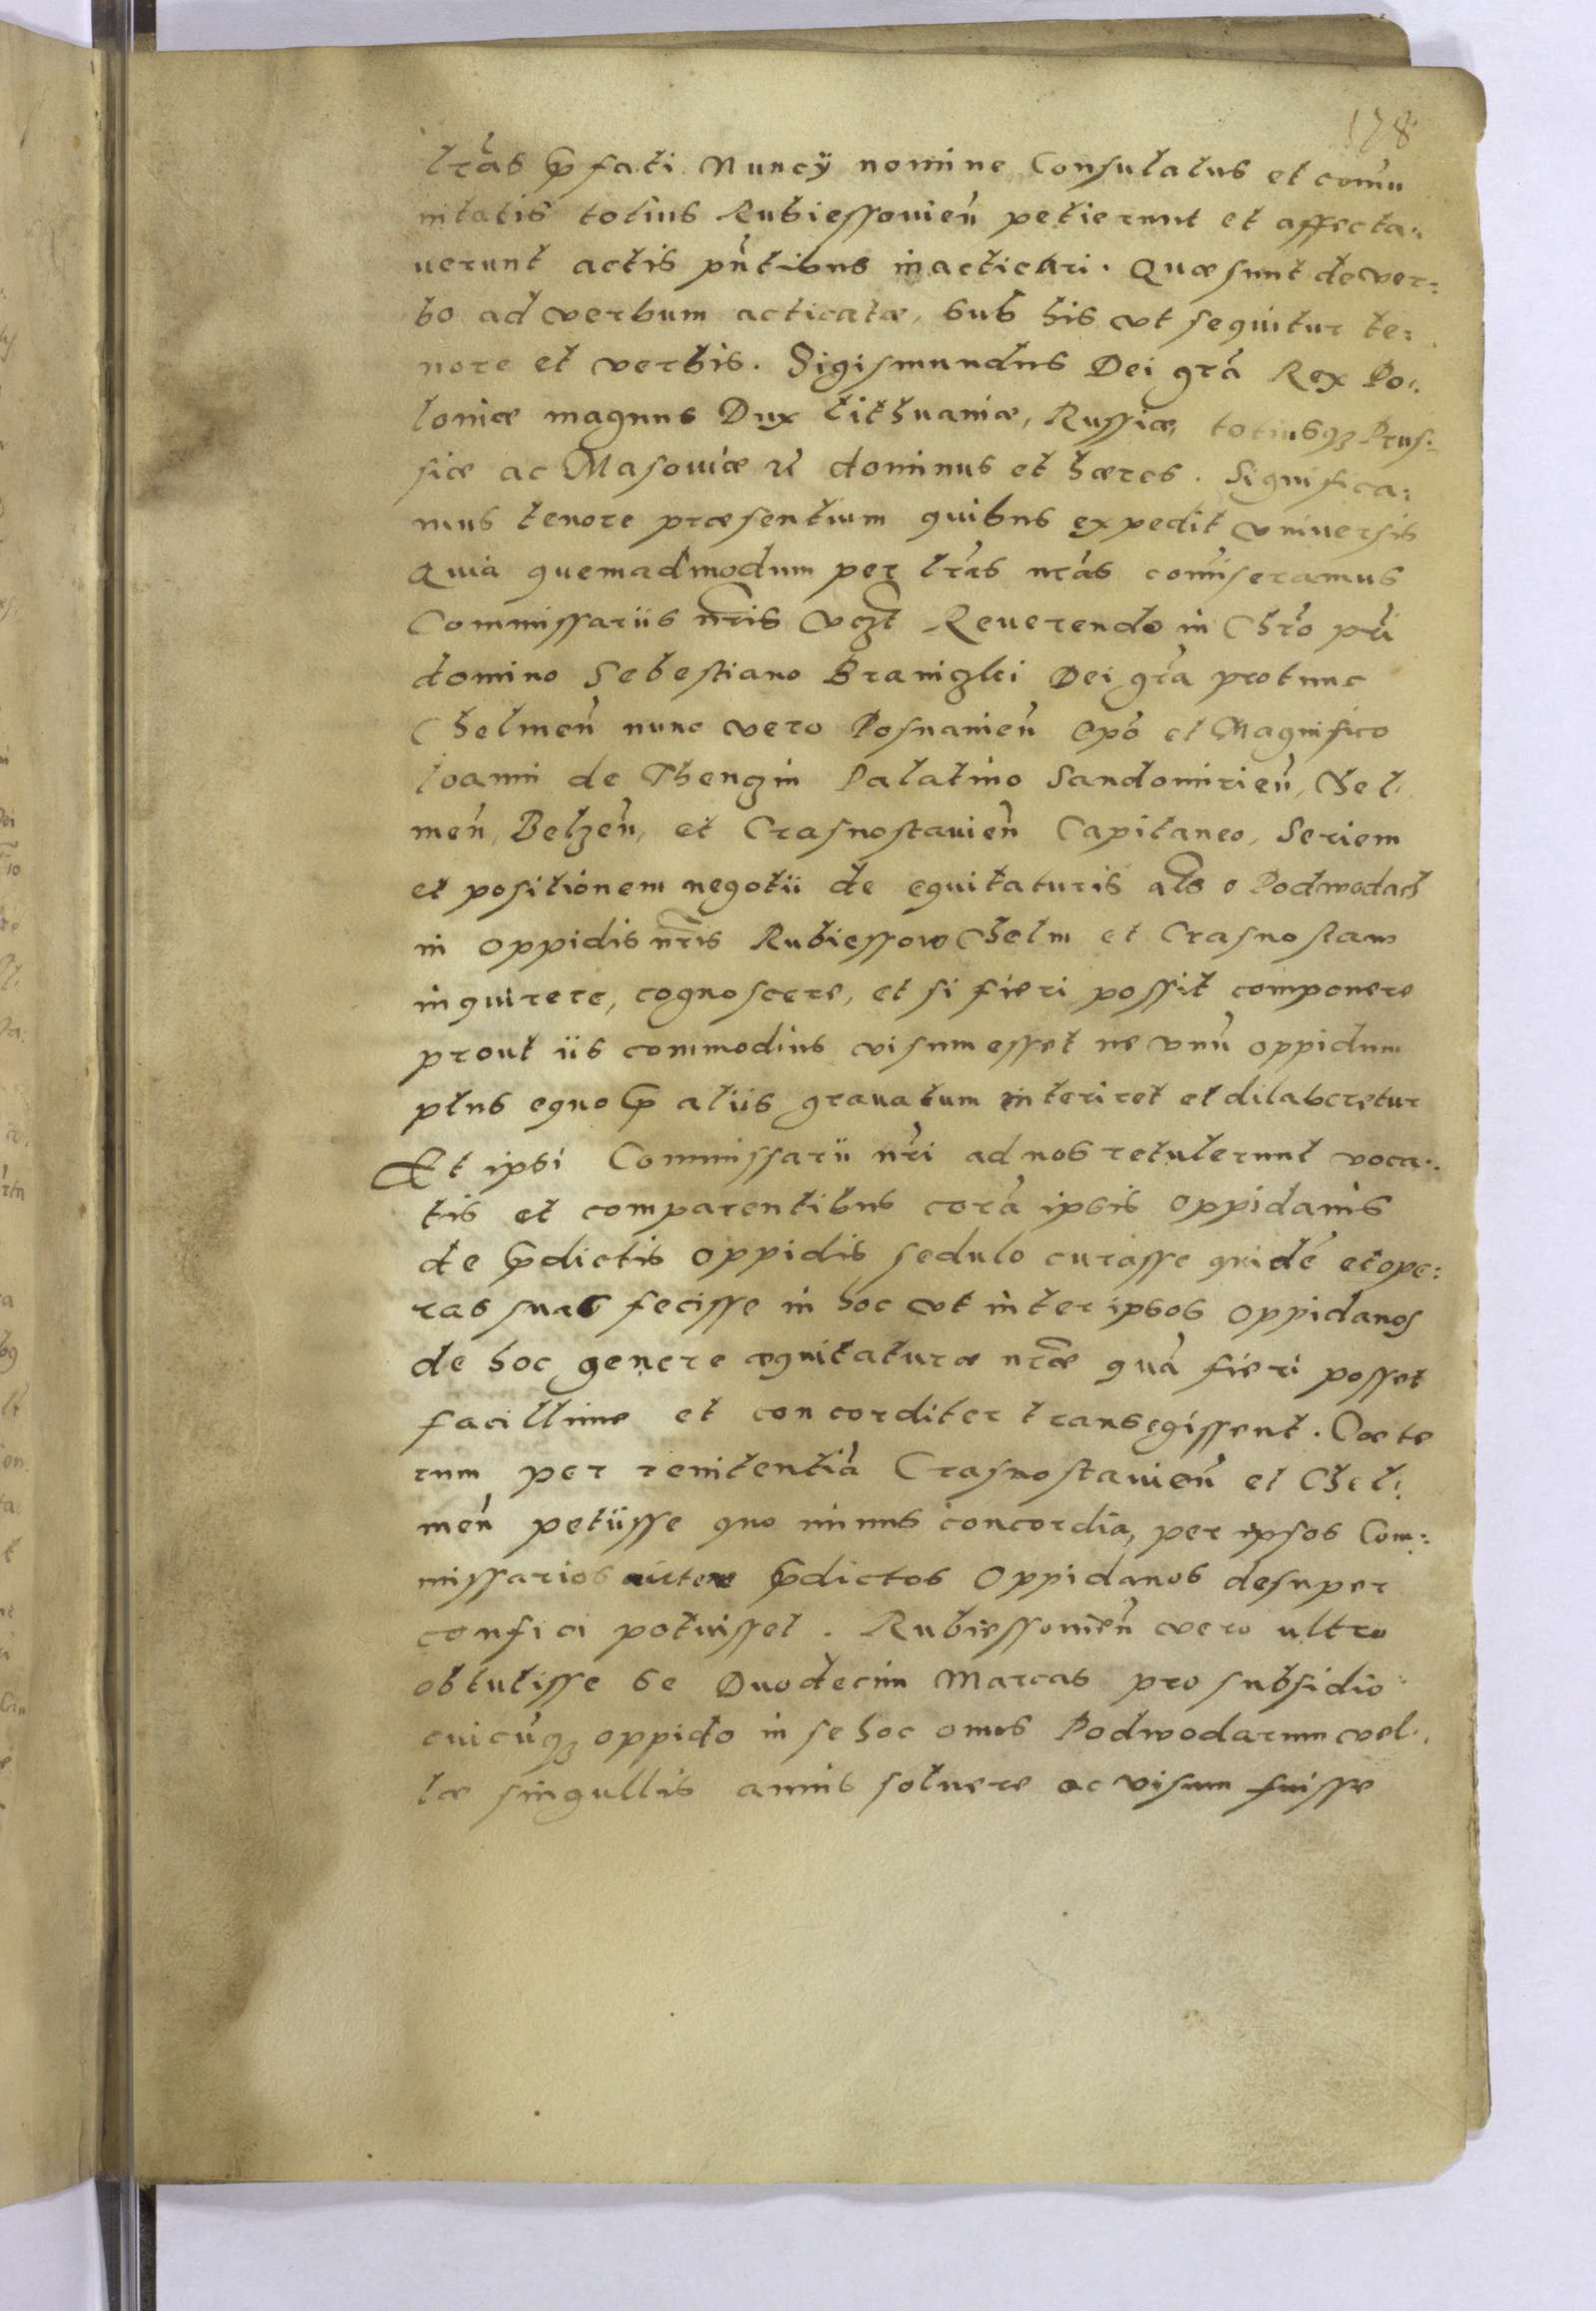 178
lr̃as p̃fati Nuncÿ nomine Consulatus et com̃u
nitatis totius Rubiessouieñ petierunt et affecta:
uerunt actis pñtibus inacticari. Quæ sunt de ver:
bo ad verbum acticatæ, sub his vt sequitur te:
nore et verbis. Sigismundus Dei gr̃a Rex Po:
loniæ magnus Dux Lithuaniæ, Russiæ, totiusqꝫ Prus:
siæ ac Masouiæ dominus et hæres. Significa:
mus tenore præsentium quibus expedit vniuersis
Quia quemadmodum per lr̃as nr̃as com̃iseramus
Commissariis nr̃is vꝫt Reuerendo in Chr̃o pr̃i
domino Sebestiano Braniczki Dei gr̃a protunc
Chelmeñ nunc vero Posnanieñ Ep̃o et Magnifico
Joanni de Thenczin Palatino Sandomirieñ, Chel:
meñ, Belzeñ, et Crasnostauieñ Capitaneo, Seriem
et positionem negotii de equitaturis al̃s o Podwodach
in oppidis nr̃is Rubiessow Chelm et Crasnostaw
inquirere, cognoscere, et si fieri possit componere
prout iis commodius visum esset ne vnũ oppidum
plus equo p̃ aliis grauatum interiret et dilaberetur
Et ipsi Commissarii nr̃i ad nos retulerunt voca:
tis et comparentibus corã ipsis oppidanis
de p̃dictis oppidis sedulo curasse quidẽ et ope:
ras suas fecisse in hoc vt inter ipsos oppidanos
de hoc genere equitaturæ nr̃æ quã fieri posset
facillime et concorditer transegissent. Cæte
rum per renitentiã Crasnostauieñ et Chel:
meñ petiisse quo minus concordia, per ipsos Com:
missarios p̃dictos Oppidanos desuper
confici potuisset. Rubiessouieñ vero ultro
obtulisse se Duodecim Marcas pro subsidio
cuicũqꝫ oppido in se hoc onus Podwodarum vel:
læ singullis annis soluere ac visum fuisse